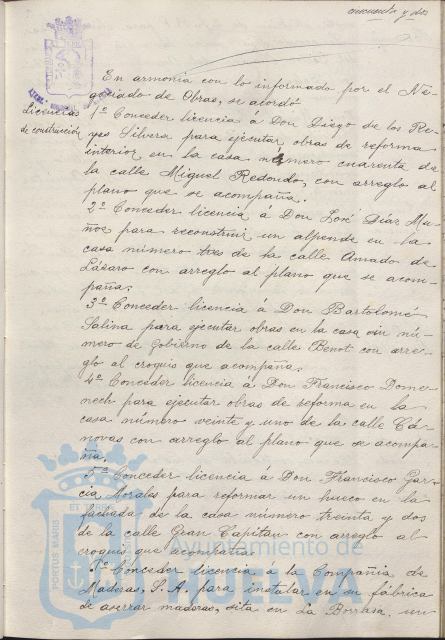 cincuenta y dos
En armonía con lo informado por el Ne-
gociado de Obras, se acordó
Licencias
de construcción
1º Conceder licencia á Don Diego de los Re-
yes Silvera para ejecutar obras de reforma
interior en la casa número cuarenta de
la calle Miguel Redondo, con arreglo al
plano que se acompaña.
2º Conceder licencia á Don José Díaz Mu-
ñoz para reconstruir un alpende en la
casa número tres de la calle Amado de
Lázaro con arreglo al plano que se acom-
paña.
3º Conceder licencia á Don Bartolomé
Salina para ejecutar obras en la casa sin nú-
mero de Gobierno de la calle Benot con arre-
glo al croquis que acompaña.
4º Conceder licencia á Don Francisco Dome-
nech para ejecutar obras de reforma en la
casa número veinte y uno de la calle Cá-
novas con arreglo al plano que se acompa-
ña.
5º Conceder licencia á Don Francisco Gar-
cía Morales para reformar un hueco en la
fachada de la casa número treinta y dos
de la calle Gran Capitan con arreglo al
croquis que acompaña.
Conceder licencia á la Compañía de
Maderas, S.A. para instalar en su fábrica
de aserrar maderas, sita en La un
PORTUS MARIS ET
Ayuntamiento de
HUELVA